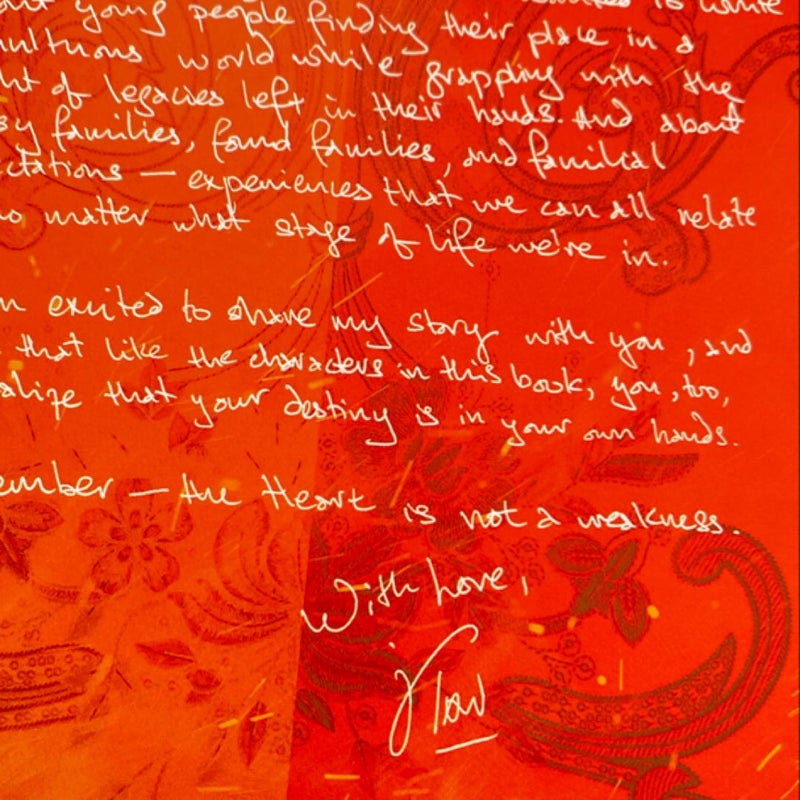 young people finding their place in a
world while grappling with the
of legacies left in their hands. And about
families, found families, and familial
— experiences that we can all relate
matter what stage of life we're in.
excited to share my story with you, and
that like the characters in this book, you, too,
that your destiny is in your own hands.
— the Heart is not a weakness.
With Love,